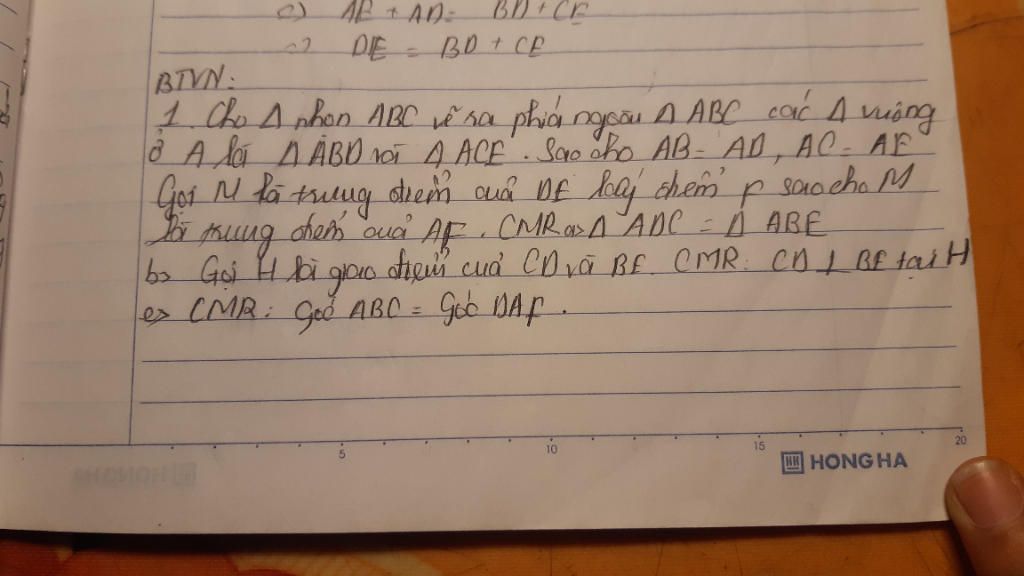 c) AE + AD = BD + CE
c) DE = BD + CE
BTVN:
1. Cho Δ nhọn ABC vẽ ra phía ngoài Δ ABC các Δ vuông
ở A là Δ ABD và Δ ACE. Sao cho AB = AD, AC = AE
Gọi M là trung điểm của DE lấy điểm F sao cho M
là trung điểm của AF. CMR a> Δ ADC = Δ ABE
b> Gọi H là giao điểm của CD và BE. CMR: CD ⊥ BE tại H
c> CMR: góc ABC = góc DAF.
5 10 15 20
HONG HA